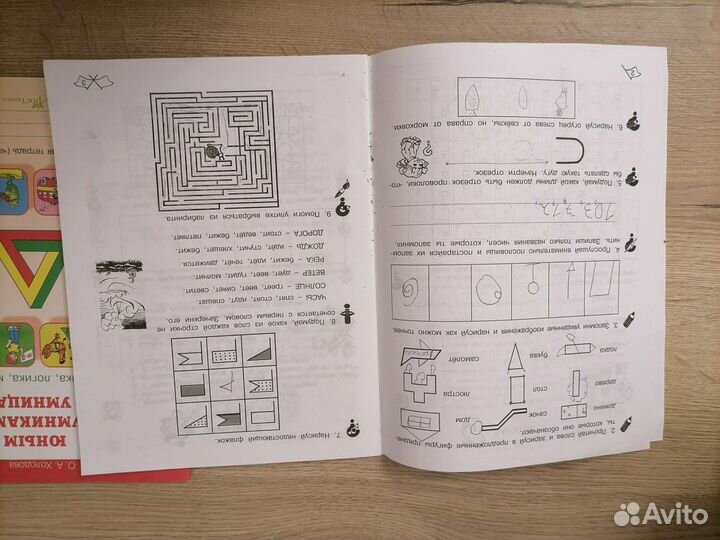 2. Прочитай слова и зарисуй в предложенные фигуры предме-
ты, которые они обозначают.
домино сачок дом
дерево стол люстра
лодка буква самолёт
3. Запомни увиденные изображения и нарисуй как можно точнее.
4. Прослушай внимательно пословицы и постарайся их запом-
нить. Запиши только названия чисел, которые ты запомнил.
5. Подумай, какой длины должен быть отрезок проволоки, что-
бы сделать такую дугу. Начерти отрезок.
6. Нарисуй огурец слева от свёклы, но справа от морковки.
2
7. Нарисуй недостающий флажок.
8. Подумай, какое из слов каждой строчки не
сочетается с первым словом. Зачеркни его.
ЧАСЫ – спят, стоят, идут, спешат.
СОЛНЦЕ – греет, веет, сияет, светит.
ВЕТЕР – дует, веет, гудит, молчит.
РЕКА – бежит, идёт, течёт, движется.
ДОЖДЬ – идёт, стучит, хлещет, бежит.
ДОРОГА – стоит, ведёт, бежит, петляет.
9. Помоги улитке выбраться из лабиринта.
3
О. А. Холодова
ЮНЫМ
УМНИКАМ
УМНИЦА
логика,
Avito